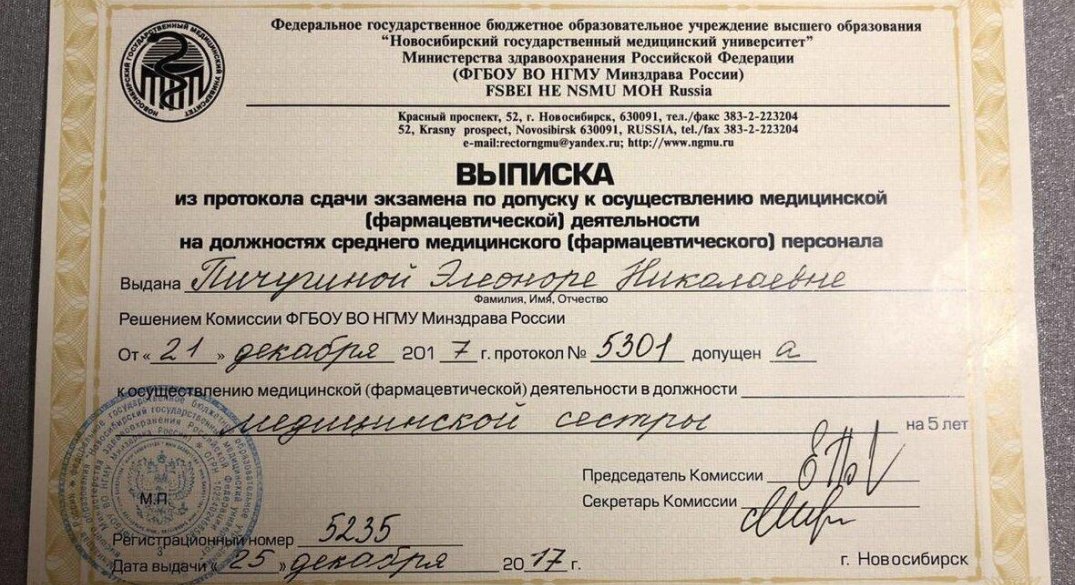 Федеральное государственное бюджетное образовательное учреждение высшего образования
“Новосибирский государственный медицинский университет”
Министерства здравоохранения Российской Федерации
(ФГБОУ ВО НГМУ Минздрава России)
FSBEI HE NSMU MOH Russia
НОВОСИБИРСКИЙ ГОСУДАРСТВЕННЫЙ МЕДИЦИНСКИЙ УНИВЕРСИТЕТ
Красный проспект, 52, г. Новосибирск, 630091, тел./факс 383-2-223204
52, Krasny prospect, Novosibirsk 630091, RUSSIA, tel./fax 383-2-223204
e-mail:rectorngmu@yandex.ru; http://www.ngmu.ru
ВЫПИСКА
из протокола сдачи экзамена по допуску к осуществлению медицинской
(фармацевтической) деятельности
на должностях среднего медицинского (фармацевтического) персонала
Выдана Пичугиной Элеоноре Николаевне
Фамилия, Имя, Отчество
Решением Комиссии ФГБОУ ВО НГМУ Минздрава России
От « 21 » декабря 2017 г. протокол № 5301 допущен а
к осуществлению медицинской (фармацевтической) деятельности в должности
медицинской сестры на 5 лет
Председатель Комиссии
Секретарь Комиссии
М.П.
Регистрационный номер 5235
Дата выдачи « 25 » декабря 2017 г.
г. Новосибирск